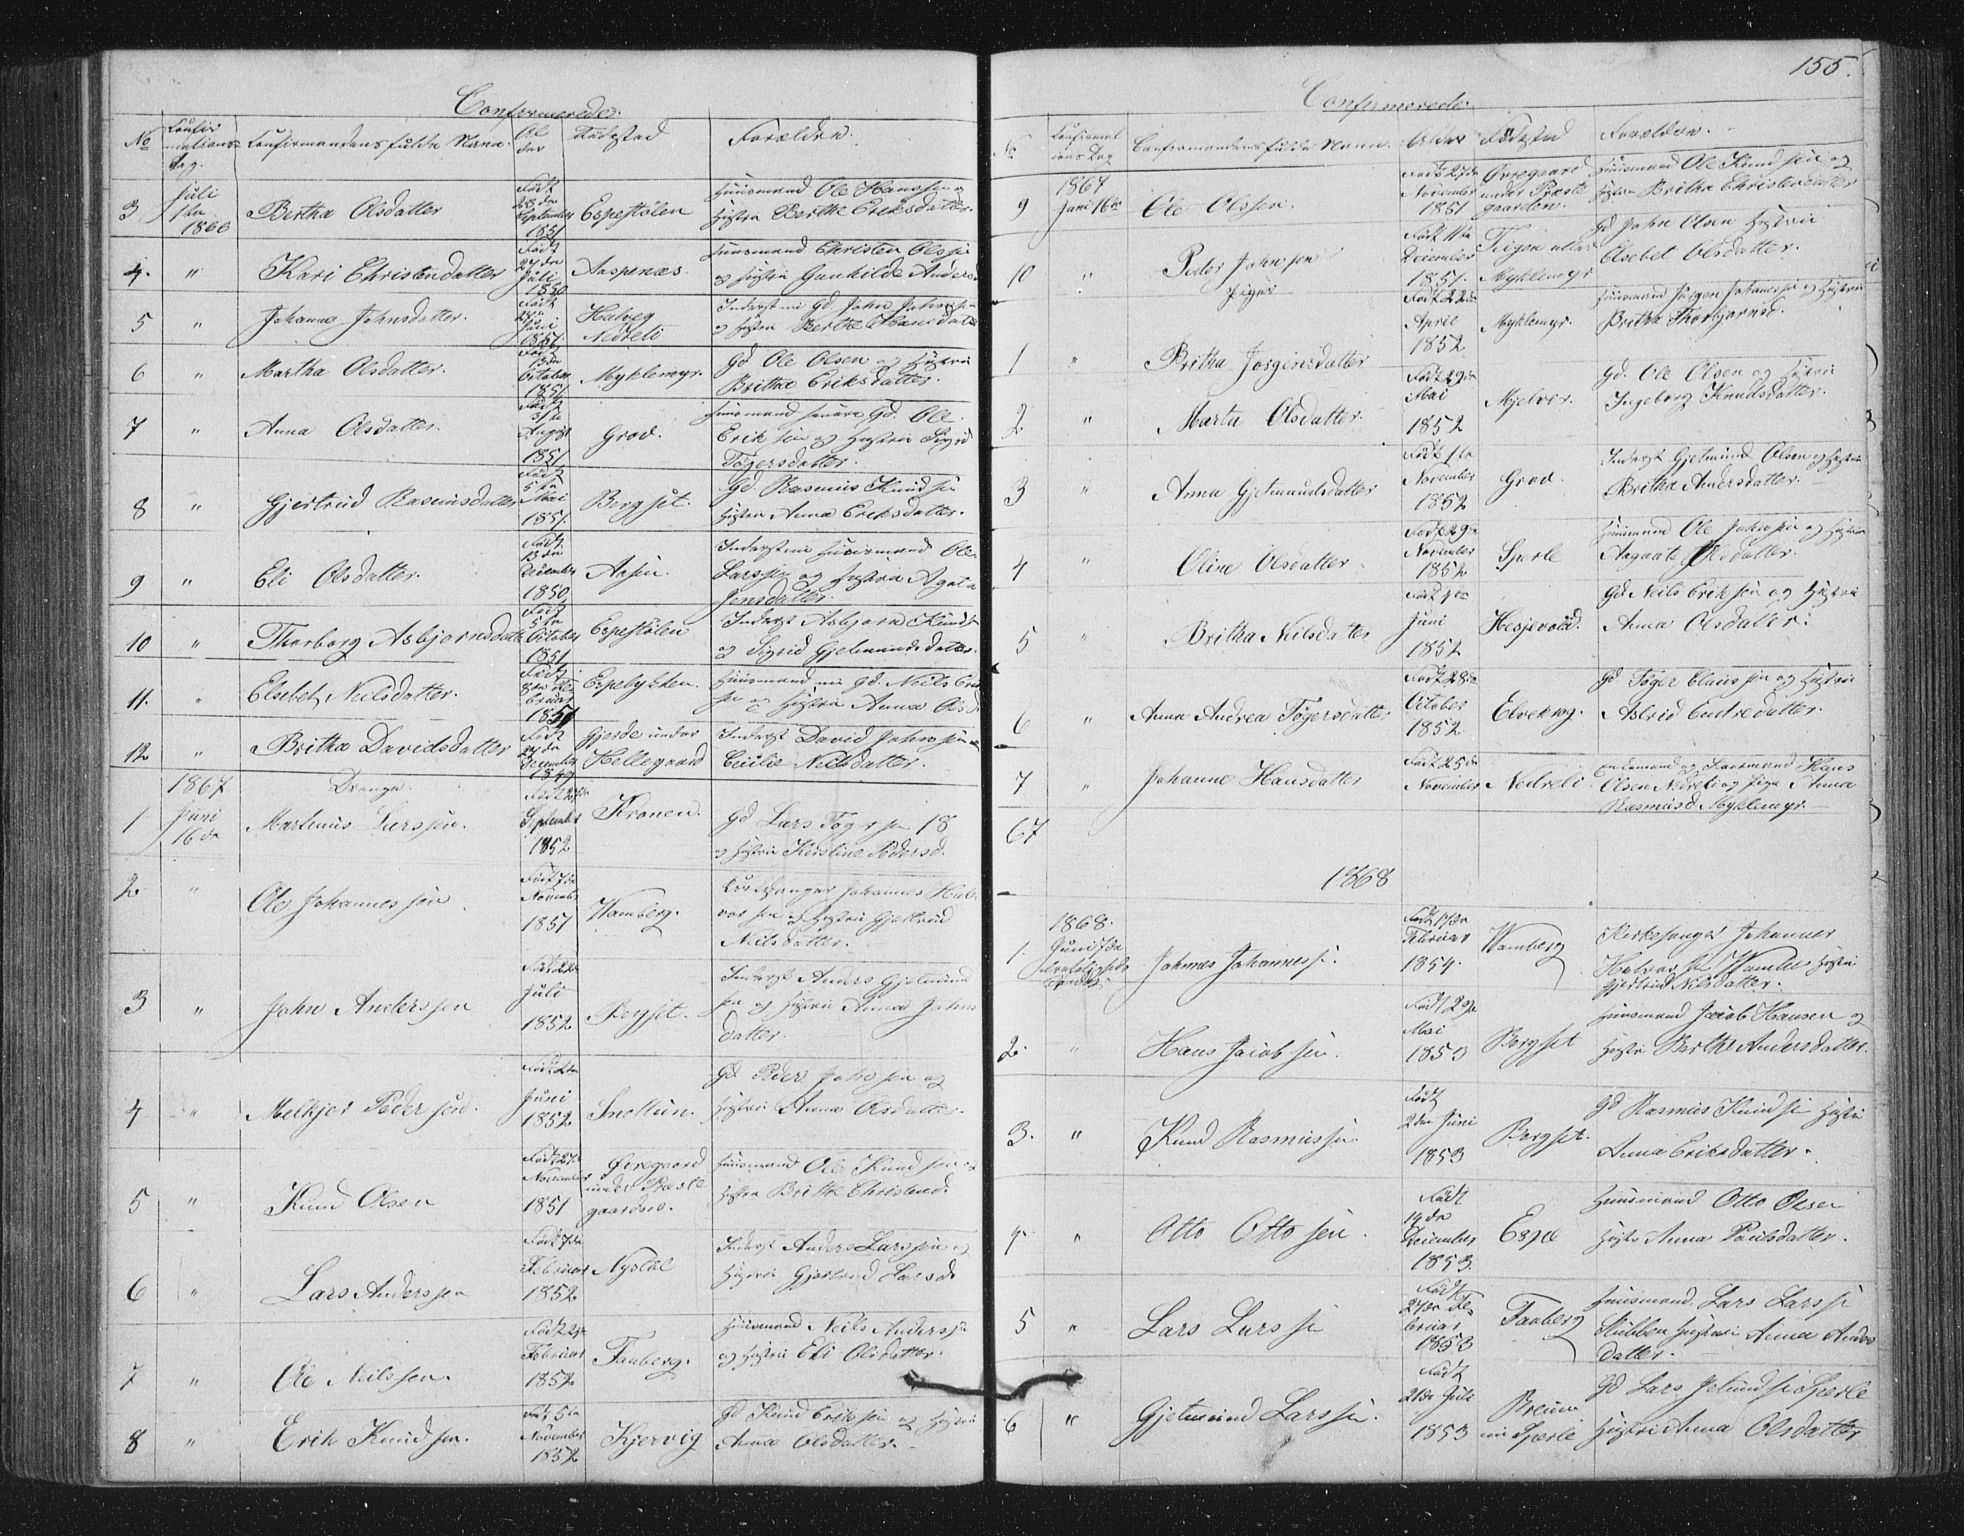 Confirmerede.
No
Confir
mations
dag.
Confirmandens fulde Navn.
Al
der
Födested
Forældre.
3
Juli
1ste
1866
Bertha Olsdatter
Født
28de
September
1851
Espestölen
Huusmand Ole Hanssen og
Hustru Berthe Eriksdatter.
4.
"
Kari Christendatter
Født
24de
Juli
1850
Aaspenæs.
Huusmand Christen Olssen
og Hustru Gunhilde Anders
5
"
Johanne Johnsdatter.
Født
Juni
1851.
Halveg
Nedreli
Inderst nu Gd John Johnssen
og Hustru Berthe Hansdat
6
"
Martha Olsdatter.
Født
13de
October
1851
Myklemyr.
Gd Ole Olsen og Hustru
Brithe Eriksdatter.
7
"
Anna Olsdatter.
Født
August
1851
Grov.
Huusmand senere Gd. Ole
Eriksen og Hustru Sigrid
Tögersdatter.
8
"
Gjertrud Rasmusdatter
Født
5te
Mai
1851.
Bergset.
Gd Rasmus Knudsen
Hustru Anna Eriksdatter.
9
"
Eli Olsdatter.
Født
13de
December
1850
Aasen.
Inderst nu Huusmand Ole
Larssen og Hustru Agata
Jensdatter.
10
"
Thorborg Asbjørnsdatt
Født
5te
October
1851
Espestölen
Inderst Asbjørn Knuds
og Sigrid Gjelmundsdatter.
11.
"
Elsebet Neilsdatter.
Født
8de Fe
bruar
1851
Espelykken.
Huusmand nu Gd. Neils Erik
sen og Hustru Anna Olsd
12
"
Britha Davidsdatter
Født
24de
December
1849
Gjerde under
Hellegaard
Inderst David Johnssen og
Cecilie Neilsdatter.
1867
Drenge.
1
Juni
16de
Martinus Larssen.
Født 27de
September
1852
Kronen.
Gd Lars Tögersen 18
og Hustru Kirstine Pedersd.
2.
"
Ole Johannessen
Født 7de
Novembr
1851
Wamberg.
Kirkesanger Johannes Hal
vorsen og Hustru Gjertrud
Neilsdatter.
3
"
John Anderssen
Juli
1852
Bergset.
Inderst Anders Gjelmund
sen og Hustru Anna Johns
datter.
4
"
Melkjer Pedersen.
Født 2den
Juni
1852
Snettun.
Gd Peder Johnssen og
Hustru Anna Olsdatter.
5
"
Knud Olsen
Født 27de
November
1851
Øvregaard
under Præste
gaarden.
Huusmand Ole Knudsen og
Hustru Britha Christend.
6
"
Lars Anderssen
Født 7de
Februar
1852
Nystøl
Inderst Anders Larssen og
Hustru Gjertrud Larsd.
7
"
Ole Neilssen.
Februar
1852
Faaberg.
Huusmand Neils Anderss
og Hustru Eli Olsdatter.
8
"
Erik Knudsen.
Født 5te
November
1852
Kjervig
Gd Knud Eriksen og Hustru
Anna Olsdatter.
155.
Confirmerede.
No
Confirmat
ions Dag
Confirmandens fulde Navn.
Alder
Födested
Forældre.
9
1867
Juni 16de
Ole Olssen.
Født 27de
November
1851
Øvregaard
under Præste
gaarden.
Huusmand Ole Knudsen og
Hustru Britha Christendatter
10
"
Peder Johnssen
Født 11te
December
1851.
Teigen eller
Myklemyr
Gd John Olsen Hustru
Elsebet Olsdatter.
Piger
1
"
Britha Jørgensdatter
Født 22de
April
1852
Myklemyr.
Huusmand Jørgen Johannessen og Hustru
Britha Thorbjørnsd.
2
"
Marta Olsdatter.
Født 29de
Mai
1852
Mjelver.
Gd. Ole Olsen og Hustru
Ingeborg Knudsdatter.
3
"
Anna Gjetmundsdatter
Født 1te
November
1852
Grov.
Inderst Gjetmund Olsen og Hustru
Britha Andersdatter.
4
"
Oline Olsdatter
Født 29de
November
1852
Sperle
Huusmand Ole Johnssen og Hustru
Aagaate Olsdatter.
5
"
Britha Neilsdatter
Juni
1852
Hesjevold.
Gd Neils Eriksen og Hustru
Anna Olsdatter.
6
"
Anna Andrea Tögersdatter
Født 28de
October
1852
Elvekrog.
Gd Töger Claussen og Hustru
Astrid Endredatter.
7
"
Johanne Hansdatter
Født 25de
November
Nedreli
Enkemand og Huusmand Hans
Olsen Nedreli og Pige Anna
Rasmusd. Myklemyr.
67
1868
1.
1868.
Juni 7de
Trefoldigheds
Søndag.
Johannes Johannessen.
Født 17de
Februar
1854.
Wamberg
Kirkesanger Johannes
Halvorsen Wamberg Hustru
Gjertrud Nilsdatter.
2.
"
Hans Jacobsen.
Født 29de
Mai
1853
Bergset
Huusmand Jacob Hansen og
Hustru Berthe Andersdatter.
3.
"
Knud Rasmussen.
Født
2den Juni
1853
Bergset.
Gd Rasmus Knudsen Hustru
Anna Eriksdatter.
4.
"
Otto Ottosen.
Født
19de
December
1853.
Espe
Huusmand Otto Olsen
Hustru Anna Paulsdatter.
5
"
Lars Larssen
Født
27de Fe
bruar
1853
Faaberg
Huusmand Lars Larssen
Stubben Hustru Anna Anders
datter.
6
"
Gjetmund Larssen.
Født
21de Juli
1853
Breum
nu Sperle
Gd Lars Jetmundsen Sperle
Hustru Anna Olsdatter